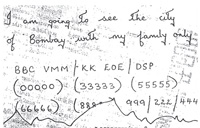 I am going to see the city
of Bombay with my family only
BBC VMM / KK EOE / DSP
(00000) (33333) (55555)
(66666) (888 999/222/444